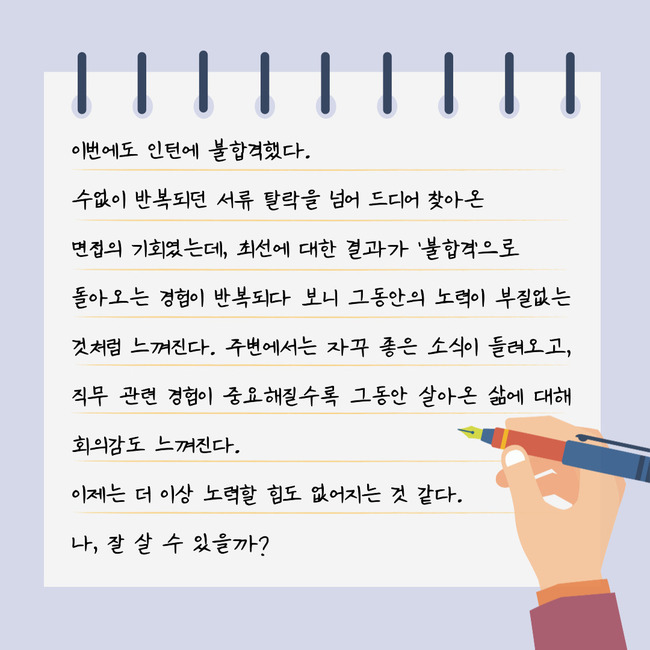 이번에도 인턴에 불합격했다.
수없이 반복되던 서류 탈락을 넘어 드디어 찾아온
면접의 기회였는데, 최선에 대한 결과가 '불합격'으로
돌아오는 경험이 반복되다 보니 그동안의 노력이 부질없는
것처럼 느껴진다. 주변에서는 자꾸 좋은 소식이 들려오고,
직무 관련 경험이 중요해질수록 그동안 살아온 삶에 대해
회의감도 느껴진다.
이제는 더 이상 노력할 힘도 없어지는 것 같다.
나, 잘 살 수 있을까?